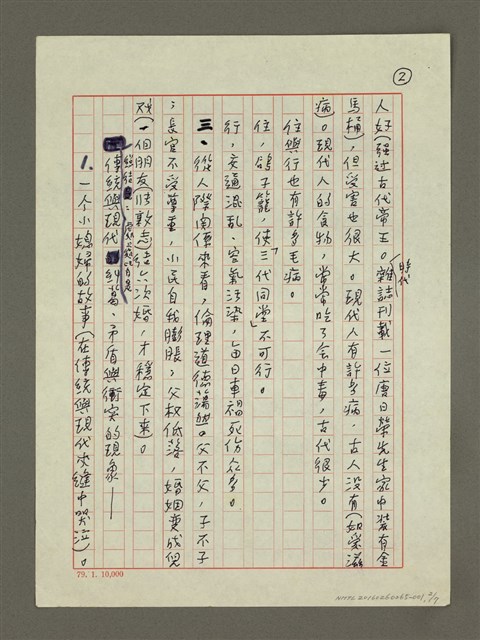 ②
人好（強过古代帝王。時代雜誌刊載一位唐日榮先生家中裝有金
馬桶），但受害也很大。現代人有許多病，古人没有（如愛滋
病）。現代人的食物，常常吃了会中毒，古代很少。
住與行也有許多毛病。
住，鴿子籠，使「三代同堂」不可行。
行，交通混乱、空氣汚染，每日車禍死伤众多。
三、從人際関係來看，倫理道德蕩然。父不父，子不子
；長官不受尊重，小民自我膨脹；父权低落，婚姻变成児
戏（一個朋友 結六次婚，才穩定下来）。
傳統與現代糾葛、矛盾與衝突的現象——
1. 一个小媳婦的故事（在傳統與現代夾縫中哭泣）。
79. 1. 10,000
2/7